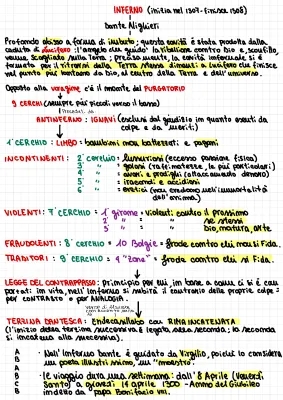 INFERNO (inizio nel 1307 - finisce 1308)
Dante Alighieri
Profondo abisso a forma di imbuto; questa cavità è stata prodotta dalla
caduta di Lucifero: l'angelo che guidò la ribellione contro Dio e, sconfitto,
venne scagliato sulla Terra; precisamente, la cavità infernale si è
formata per il ritrarsi della Terra stessa dinanzi a Lucifero che finisce
nel punto più lontano da Dio, al centro della Terra e dell'universo.
Opposta alla voragine c'è il monte del PURGATORIO
9 CERCHI (sempre più piccoli verso il basso)
ANTINFERNO: IGNAVI (esclusi dal giudizio in quanto esenti da
colpe e da meriti)
1° CERCHIO: LIMBO = bambini non battezzati e pagani
INCONTINENTI: 2° cerchio = lussuriosi (eccesso passione fisica)
3° " = golosi
4° " = avari e prodighi (attaccamento denaro)
5° " = iracondi e accidiosi
6° " = eretici (non credono nell'immortalità
dell'anima)
VIOLENTI: 7° CERCHIO = 1° girone = violenti contro il prossimo
2° " = " se stessi
3° " = " Dio, natura, arte
FRAUDOLENTI: 8° cerchio = 10 Bolgie = frode contro chi non si fida
TRADITORI: 9° cerchio = 4 "zone" = frode contro chi si fida
LEGGE DEL CONTRAPPASSO: principio per cui, in base a come ci si è com-
portati in vita, nell'Inferno si subirà il contrario delle proprie colpe =
per CONTRASTO o per ANALOGIA.
TERZINA DANTESCA: Endecasillabo con RIMA INCATENATA
(l'inizio della terzina successiva è legato alla seconda; la seconda
si incatena alla successiva).
A
B
A
B
C
B
· Nell'Inferno Dante è guidato da Virgilio, poiché lo considera
un poeta illustrissimo, un "maestro".
· Il viaggio dura una settimana: dall'8 Aprile (Venerdì
Santo) a giovedì 14 aprile 1300 - Anno del Giubileo
indetto da papa Bonifacio VIII.